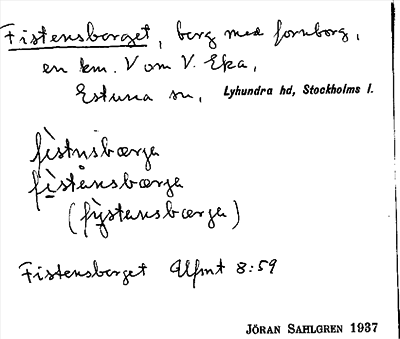 Fistensberget, berg med fornborg,
en km. V om V. Eka,
Estuna sn, Lyhundra hd, Stockholms l.
fìstnsbærja
fìstånsbærja
(fỳstansbærja)
Fistensberget Alfmt 8:59
JÖRAN SAHLGREN 1937